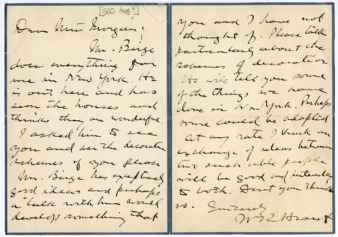 [GEO. Aug ?]
Dear Miss Morgan:
Mr. Birge
does everything for
me in New York. He
is out here and has
seen the houses and
thinks them wonderful.
I asked him to see
you and with decorative
schemes if you please
Mr. Birge has exceptionally
good ideas and perhaps
a talk with him will
develop something that
you and I have not
thought of. Please talk
particularly about the
schemes of decoration.
He will tell you some
of the things we have
done in New York. Perhaps
some could be adopted
At any rate I think an
exchange of ideas between
two such able people
will be good and interesting
to both. Don't you think
so.
Sincerely
W R Hearst